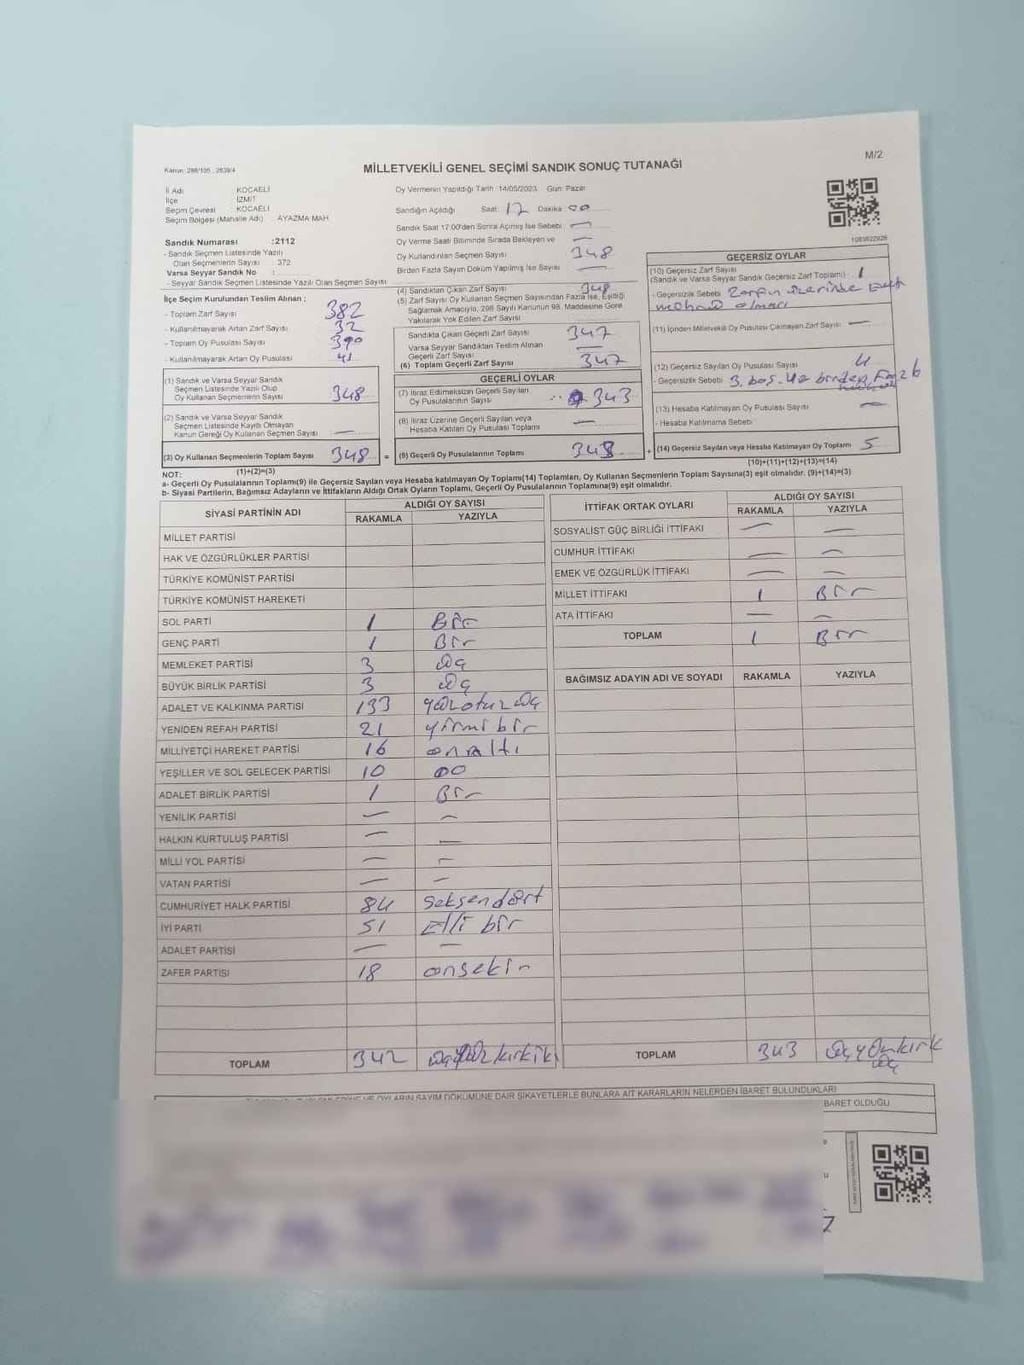 M/2
Kanun: 298/105 , 2839/4
MİLLETVEKİLİ GENEL SEÇİMİ SANDIK SONUÇ TUTANAĞI
İl Adı KOCAELİ
İlçe İZMİT
Seçim Çevresi KOCAELİ
Seçim Bölgesi (Mahalle Adı) : AYAZMA MAH.
Sandık Numarası :2112
- Sandık Seçmen Listesinde Yazılı
Olan Seçmenlerin Sayısı : 372
Varsa Seyyar Sandık No :
- Seyyar Sandık Seçmen Listesinde Yazılı Olan Seçmen Sayısı
İlçe Seçim Kurulundan Teslim Alınan ;
- Toplam Zarf Sayısı 382
- Kullanılmayarak Artan Zarf Sayısı 32
- Toplam Oy Pusulası Sayısı 390
- Kullanılmayarak Artan Oy Pusulası 41
(1) Sandık ve Varsa Seyyar Sandık
Seçmen Listesinde Yazılı Olup
Oy Kullanan Seçmenlerin Sayısı 348
(2) Sandık ve Varsa Seyyar Sandık
Seçmen Listesinde Kayıtlı Olmayan
Kanun Gereği Oy Kullanan Seçmen Sayısı —
(3) Oy Kullanan Seçmenlerin Toplam Sayısı 348 =
Oy Vermenin Yapıldığı Tarih :14/05/2023 Gün: Pazar
Sandığın Açıldığı Saat: 17 Dakika 00
Sandık Saat 17.00'den Sonra Açılmış İse Sebebi —
Oy Verme Saati Bitiminde Sırada Bekleyen ve —
Oy Kullandırılan Seçmen Sayısı 348
Birden Fazla Sayım Döküm Yapılmış İse Sayısı —
(4) Sandıktan Çıkan Zarf Sayısı 348
(5) Zarf Sayısı Oy Kullanan Seçmen Sayısından Fazla İse, Eşitliği
Sağlamak Amacıyla, 298 Sayılı Kanunun 98. Maddesine Göre
Yakılarak Yok Edilen Zarf Sayısı
Sandıkta Çıkan Geçerli Zarf Sayısı 347
Varsa Seyyar Sandıktan Teslim Alınan
Geçerli Zarf Sayısı —
(6) Toplam Geçerli Zarf Sayısı 347
GEÇERLİ OYLAR
(7) İtiraz Edilmeksizin Geçerli Sayılan
Oy Pusulalarının Sayısı 343
(8) İtiraz Üzerine Geçerli Sayılan veya
Hesaba Katılan Oy Pusulası Toplamı —
(9) Geçerli Oy Pusulalarının Toplamı 343 +
1083022926
GEÇERSİZ OYLAR
(10) Geçersiz Zarf Sayısı
(Sandık ve Varsa Seyyar Sandık Geçersiz Zarf Toplamı) 1
- Geçersizlik Sebebi Zarfın üzerinde
olması
(11) İçinden Milletvekili Oy Pusulası Çıkmayan Zarf Sayısı —
(12) Geçersiz Sayılan Oy Pusulası Sayısı 4
- Geçersizlik Sebebi 3 boş birden
(13) Hesaba Katılmayan Oy Pusulası Sayısı —
- Hesaba Katılmama Sebebi
(14) Geçersiz Sayılan veya Hesaba Katılmayan Oy Toplamı 5
NOT: (1)+(2)=(3)
(10)+(11)+(12)+(13)=(14)
a- Geçerli Oy Pusulalarının Toplamı(9) ile Geçersiz Sayılan veya Hesaba katılmayan Oy Toplamı(14) Toplamları, Oy Kullanan Seçmenlerin Toplam Sayısına(3) eşit olmalıdır. (9)+(14)=(3)
b- Siyasi Partilerin, Bağımsız Adayların ve İttifakların Aldığı Ortak Oyların Toplamı, Geçerli Oy Pusulalarının Toplamına(9) eşit olmalıdır.
SİYASİ PARTİNİN ADI ALDIĞI OY SAYISI
RAKAMLA YAZIYLA
MİLLET PARTİSİ
HAK VE ÖZGÜRLÜKLER PARTİSİ
TÜRKİYE KOMÜNİST PARTİSİ
TÜRKİYE KOMÜNİST HAREKETİ
SOL PARTİ 1 Bir
GENÇ PARTİ 1 Bir
MEMLEKET PARTİSİ 3 üç
BÜYÜK BİRLİK PARTİSİ 3 üç
ADALET VE KALKINMA PARTİSİ 133 yüzotuzüç
YENİDEN REFAH PARTİSİ 21 yirmi bir
MİLLİYETÇİ HAREKET PARTİSİ 16 onaltı
YEŞİLLER VE SOL GELECEK PARTİSİ 10 on
ADALET BİRLİK PARTİSİ 1 Bir
YENİLİK PARTİSİ — —
HALKIN KURTULUŞ PARTİSİ — —
MİLLİ YOL PARTİSİ — —
VATAN PARTİSİ — —
CUMHURİYET HALK PARTİSİ 84 Seksendört
İYİ PARTİ 51 Elli bir
ADALET PARTİSİ — —
ZAFER PARTİSİ 18 onsekiz
TOPLAM 342 üçyüz kırkiki
İTTİFAK ORTAK OYLARI ALDIĞI OY SAYISI
RAKAMLA YAZIYLA
SOSYALİST GÜÇ BİRLİĞİ İTTİFAKI — —
CUMHUR İTTİFAKI — —
EMEK VE ÖZGÜRLÜK İTTİFAKI — —
MİLLET İTTİFAKI 1 Bir
ATA İTTİFAKI — —
TOPLAM 1 Bir
BAĞIMSIZ ADAYIN ADI VE SOYADI RAKAMLA YAZIYLA
TOPLAM 343 üçyüzkırk
üç
OYLARIN SAYIM DÖKÜMÜNE DAİR ŞİKAYETLERLE BUNLARA AİT KARARLARIN NELERDEN İBARET BULUNDUKLARI
BARET OLDUĞU